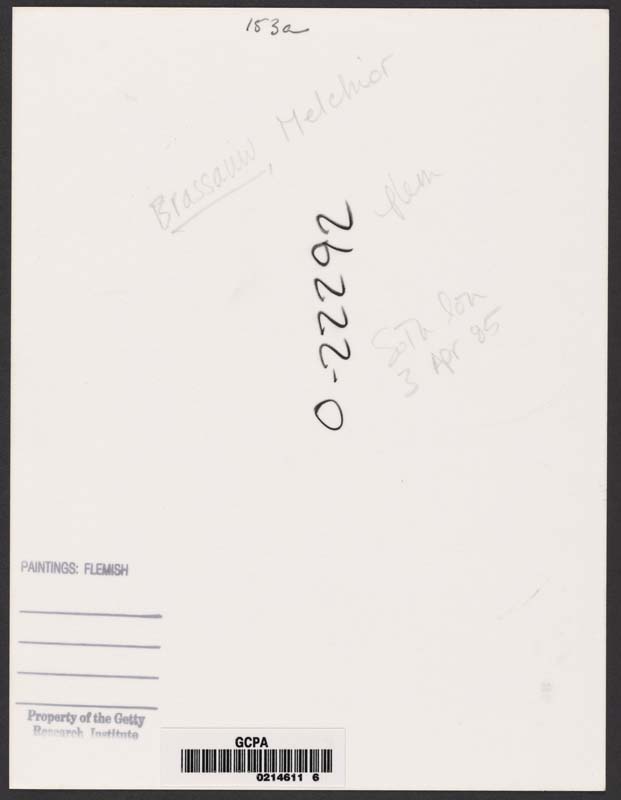 153a
Brassauw, Melchior
flem
26222-0
SoTh lon
3 Apr 85
PAINTINGS: FLEMISH
Property of the Getty
Research Institute
GCPA
0214611 6